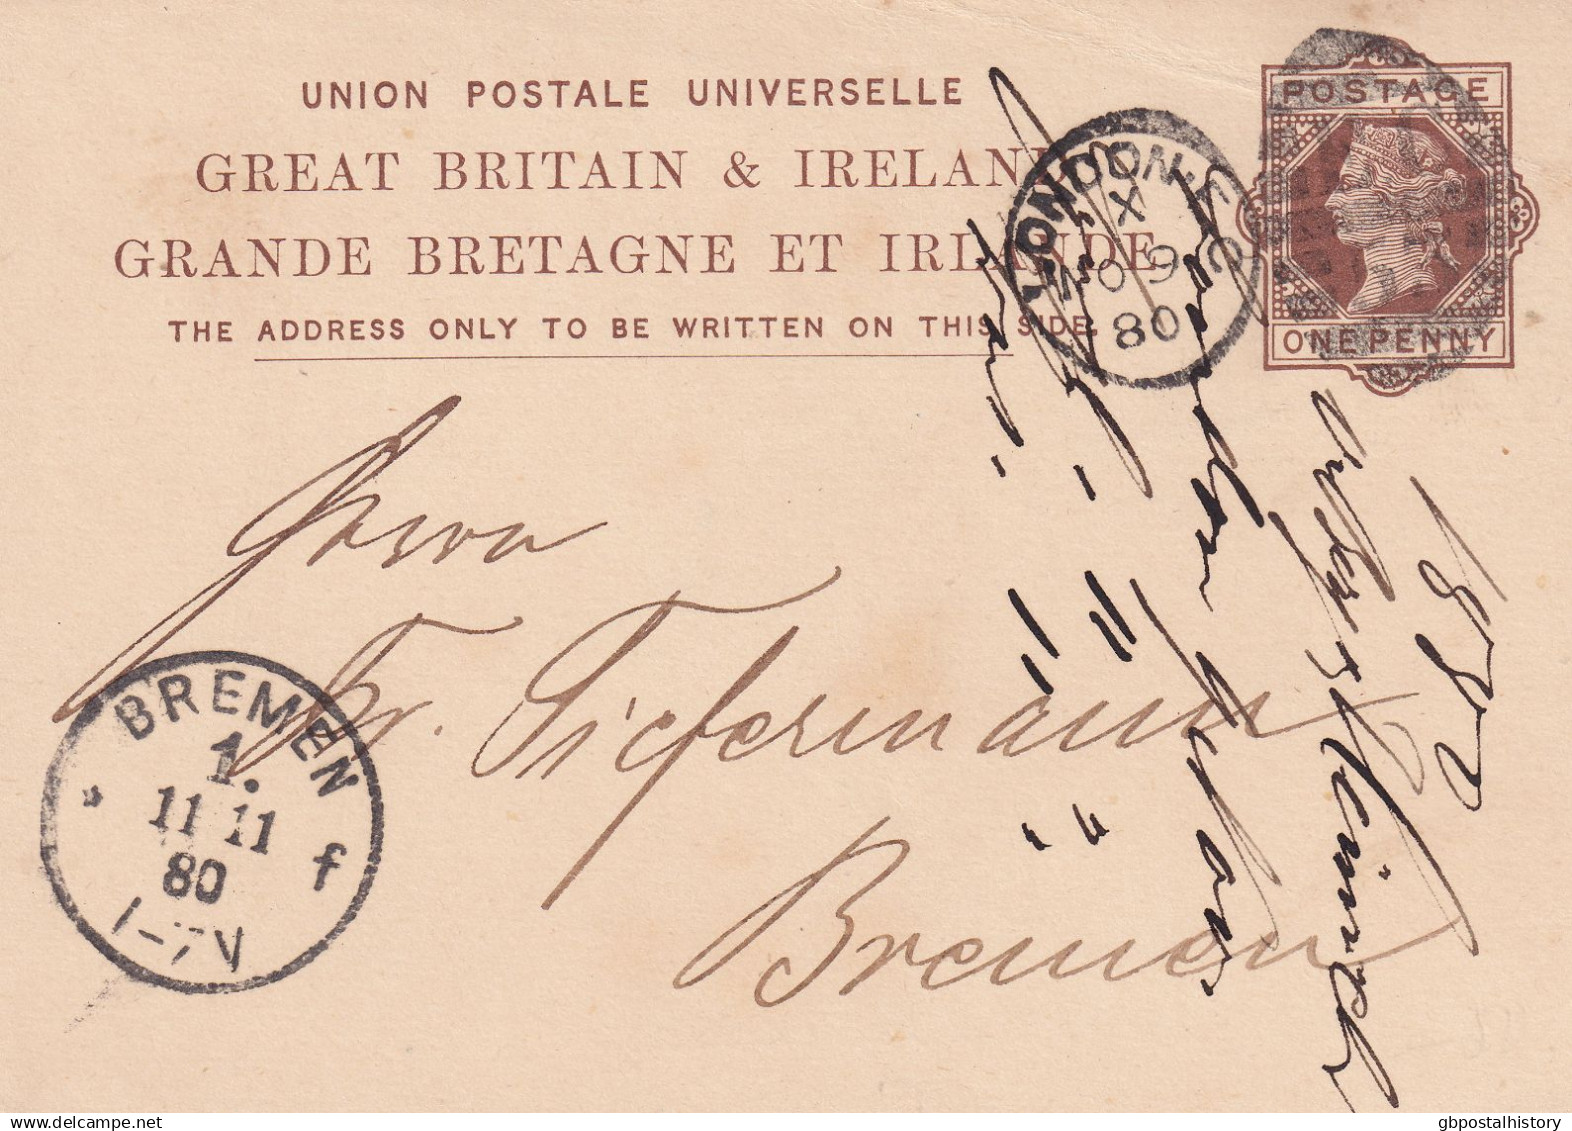 UNION POSTALE UNIVERSELLE
GREAT BRITAIN & IRELAND
GRANDE BRETAGNE ET IRLANDE
THE ADDRESS ONLY TO BE WRITTEN ON THIS SIDE.
POSTAGE
ONE PENNY
LONDON·E.C
X
NO 9
80
Herrn
Fr. Tiefermann
Bremen
BREMEN
1.
11 11
80
1-7V
f
1880
London
gbpostalhistory